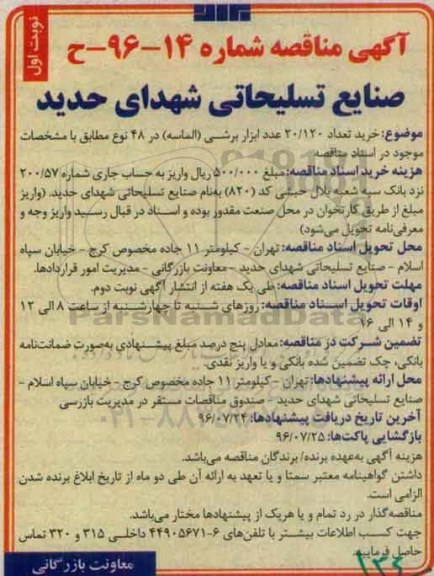 نوبت اول
آگهی مناقصه شماره ۱۴-۹۶-ح
صنایع تسلیحاتی شهدای حدید
موضوع: خرید تعداد ۲۰/۱۲۰ عدد ابزار برشی (الماسه) در ۴۸ نوع مطابق با مشخصات
موجود در اسناد مناقصه
هزینه خرید اسناد مناقصه: مبلغ ۵۰۰/۰۰۰ ریال واریز به حساب جاری شماره ۲۰۰/۵۷
نزد بانک سپه شعبه بلال حبشی کد (۸۲۰) به‌نام صنایع تسلیحاتی شهدای حدید. (واریز
مبلغ از طریق کارتخوان در محل صنعت مقدور بوده و اسناد در قبال رسید واریز وجه و
معرفی‌نامه تحویل می‌شود)
محل تحویل اسناد مناقصه: تهران - کیلومتر ۱۱ جاده مخصوص کرج - خیابان سپاه
اسلام - صنایع تسلیحاتی شهدای حدید - معاونت بازرگانی - مدیریت امور قراردادها.
مهلت تحویل اسناد مناقصه: طی یک هفته از انتشار آگهی نوبت دوم.
اوقات تحویل اسناد مناقصه: روزهای شنبه تا چهارشنبه از ساعت ۸ الی ۱۲
و ۱۴ الی ۱۶
تضمین شرکت در مناقصه: معادل پنج درصد مبلغ پیشنهادی به‌صورت ضمانت‌نامه
بانکی، چک تضمین شده بانکی و یا واریز نقدی.
محل ارائه پیشنهادها: تهران - کیلومتر ۱۱ جاده مخصوص کرج - خیابان سپاه اسلام -
صنایع تسلیحاتی شهدای حدید - صندوق مناقصات مستقر در مدیریت بازرسی
آخرین تاریخ دریافت پیشنهادها: ۹۶/۰۷/۲۴
بازگشایی پاکت‌ها: ۹۶/۰۷/۲۵
هزینه آگهی به‌عهده برنده/ برندگان مناقصه می‌باشد.
داشتن گواهینامه معتبر سمتا و یا تعهد به ارائه آن طی دو ماه از تاریخ ابلاغ برنده شدن
الزامی است.
مناقصه‌گذار در رد تمام و یا هریک از پیشنهادها مختار می‌باشد.
جهت کسب اطلاعات بیشتر با تلفن‌های ۶-۴۴۹۰۵۶۷۱ داخلی ۳۱۵ و ۳۲۰ تماس
حاصل فرمایید.
۱۳۴
معاونت بازرگانی
ParsNamadData